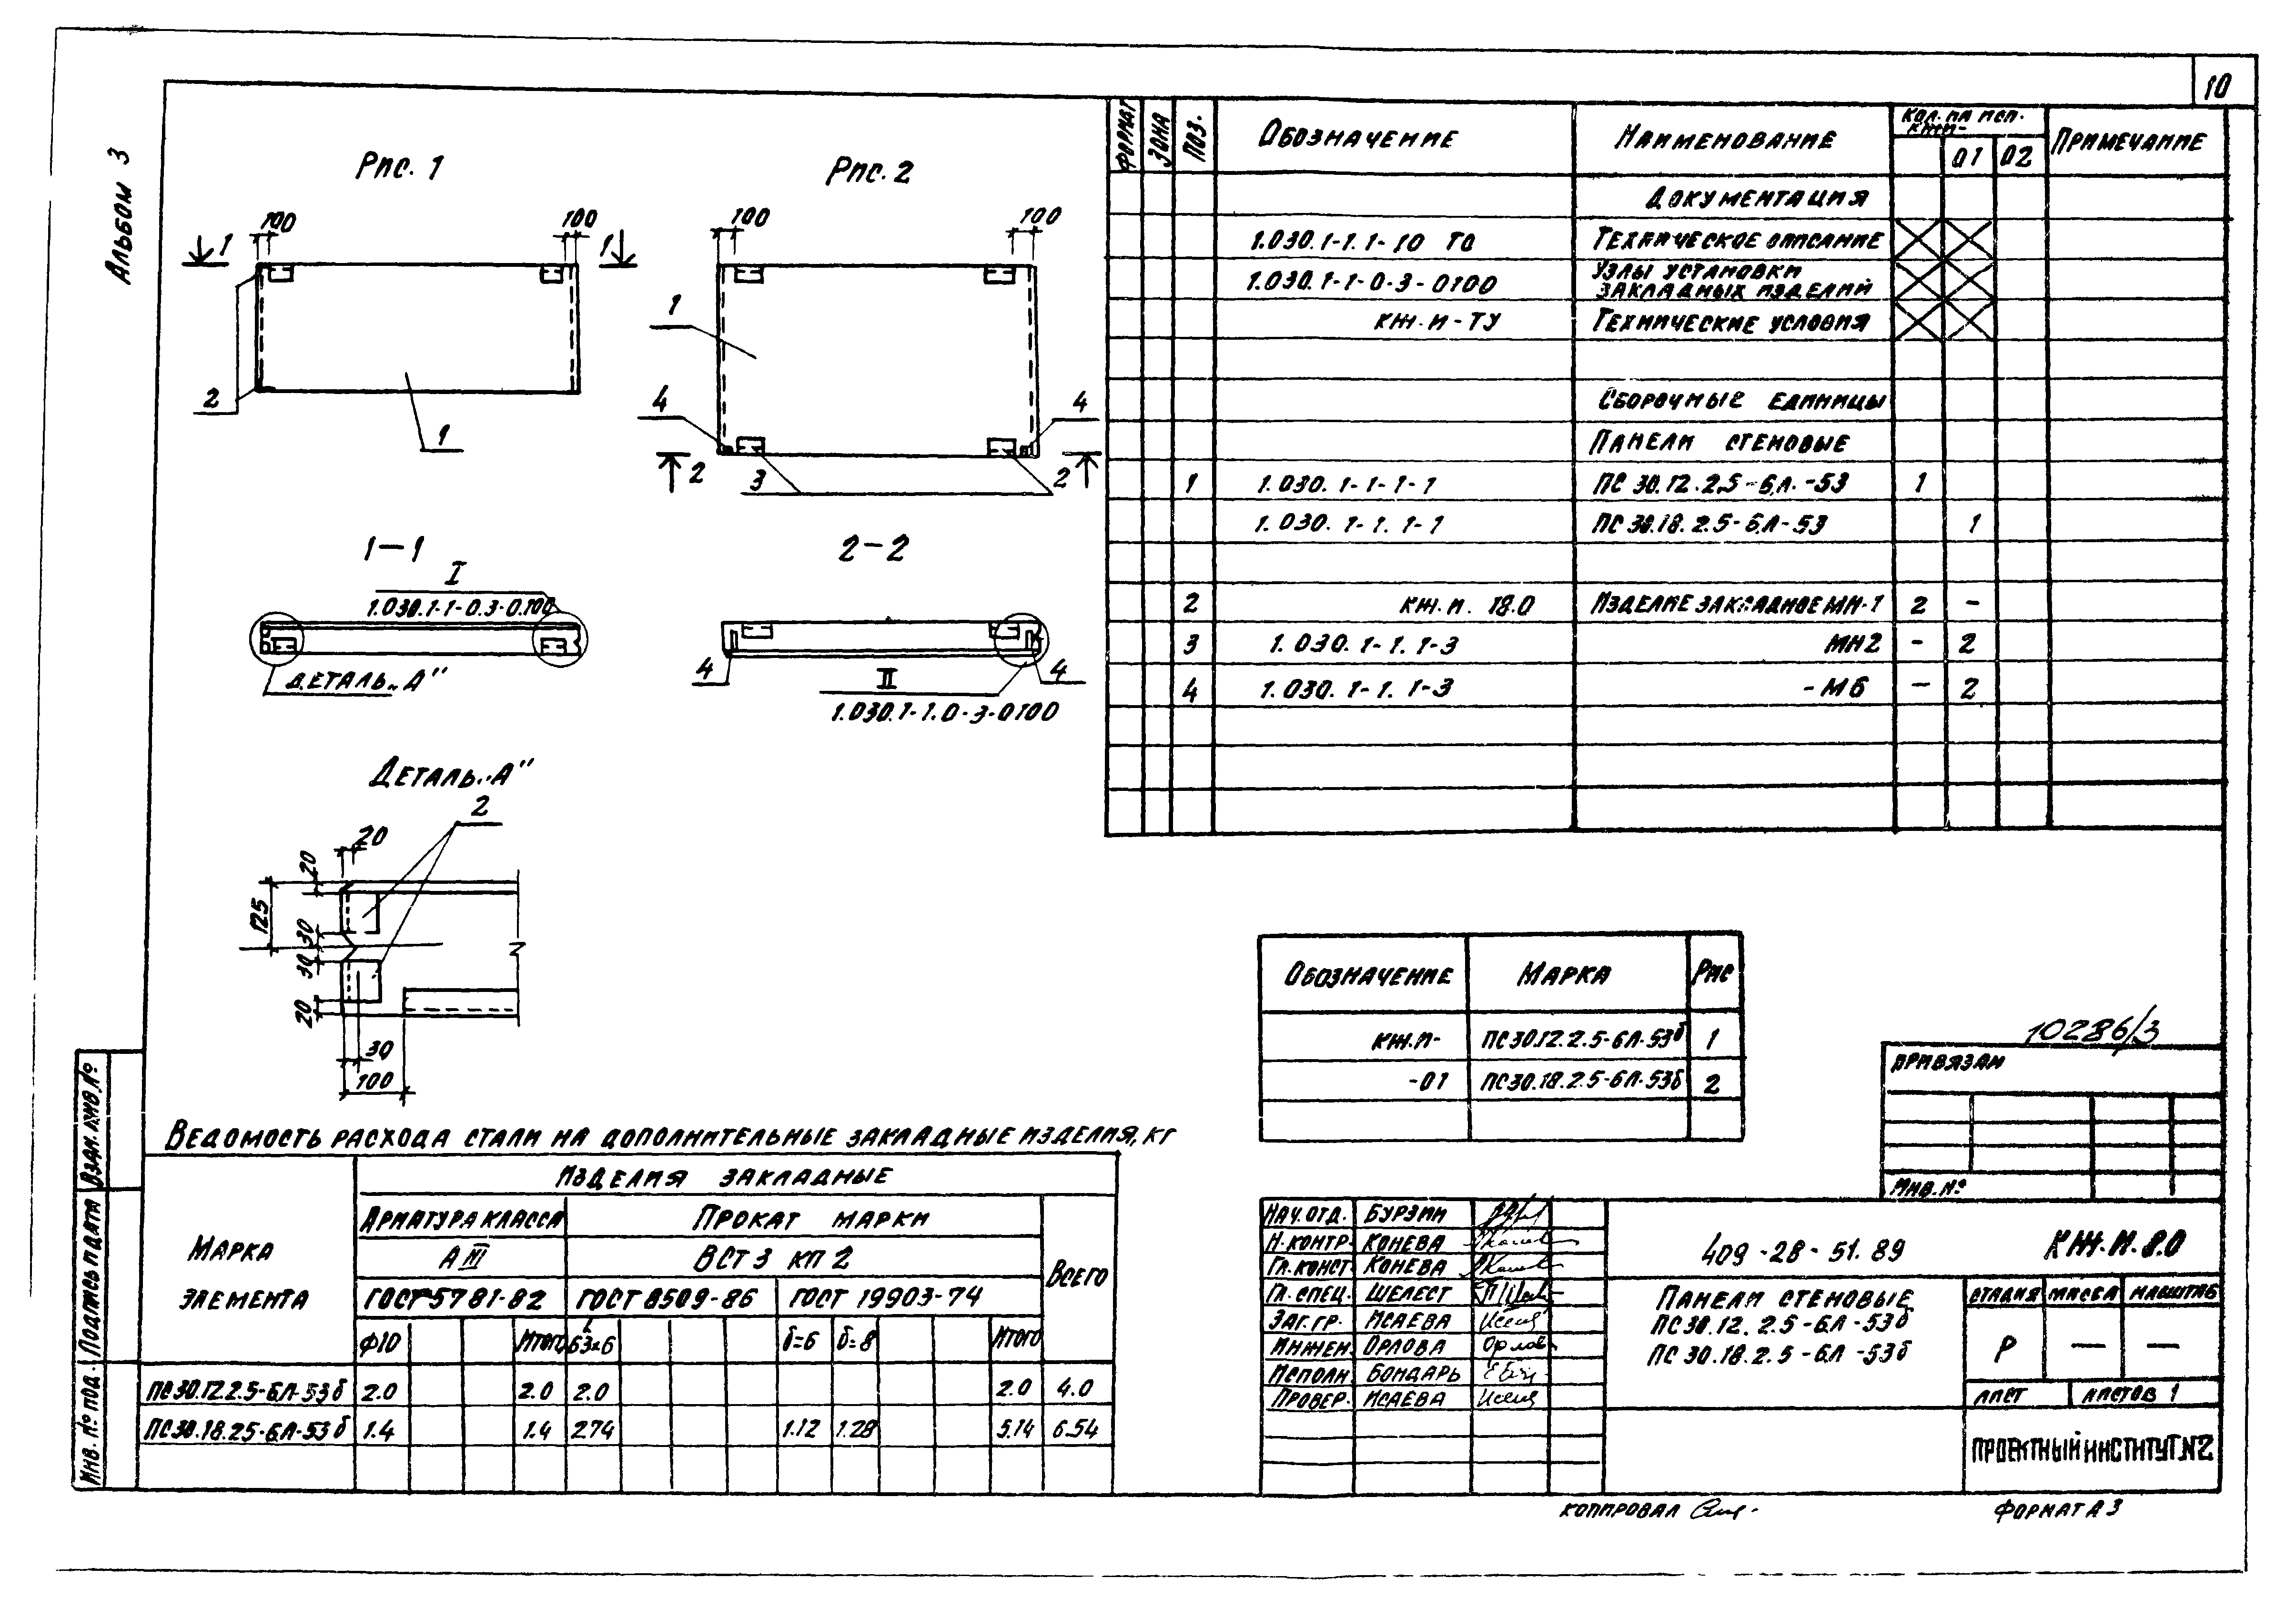 10
Альбом 3
Рис. 1
Рис. 2
100
100
100
100
1
1
2
1
1
4
4
2
3
2
1-1
I
1.030.1-1-0.3-0.100
ДЕТАЛЬ „А"
2-2
4
4
II
1.030.1-1.0-3-0100
ДЕТАЛЬ „А"
2
20
20
125
30
30
20
30
100
ФОРМАТ ЗОНА ПОЗ. ОБОЗНАЧЕНИЕ НАИМЕНОВАНИЕ КОЛ. НА ИСП. КЖИ- ПРИМЕЧАНИЕ
01 02
ДОКУМЕНТАЦИЯ
1.030.1-1.1-10 ТО ТЕХНИЧЕСКОЕ ОПИСАНИЕ
1.030.1-1-0-3-0100 УЗЛЫ УСТАНОВКИ ЗАКЛАДНЫХ ИЗДЕЛИЙ
КЖ.И-ТУ ТЕХНИЧЕСКИЕ УСЛОВИЯ
СБОРОЧНЫЕ ЕДИНИЦЫ
ПАНЕЛИ СТЕНОВЫЕ
1 1.030.1-1-1-1 ПС 30.12.2.5-6.Л.-53 1
1.030.1-1.1-1 ПС 30.18.2.5-6.Л-53 1
2 КЖ.И. 18.0 ИЗДЕЛИЕ ЗАКЛАДНОЕ МН-1 2 -
3 1.030.1-1.1-3 МН2 - 2
4 1.030.1-1.1-3 -М6 - 2
ОБОЗНАЧЕНИЕ МАРКА РИС
КЖ.И- ПС30.12.2.5-6Л-53б 1
-01 ПС30.18.2.5-6Л-53б 2
10286/3
ПРИВЯЗАН
ИНВ. №
ВЕДОМОСТЬ РАСХОДА СТАЛИ НА ДОПОЛНИТЕЛЬНЫЕ ЗАКЛАДНЫЕ ИЗДЕЛИЯ, КГ
МАРКА ЭЛЕМЕНТА
ИЗДЕЛИЯ ЗАКЛАДНЫЕ
АРМАТУРА КЛАССА ПРОКАТ МАРКИ ВСЕГО
А III ВСТ 3 КП 2
ГОСТ 5781-82 ГОСТ 8509-86 ГОСТ 19903-74
Ф10 ИТОГО 63х6 δ=6 δ=8 ИТОГО
ПС30.12.2.5-6Л-53б 2.0 2.0 2.0 2.0 4.0
ПС30.18.2.5-6.Л-53б 1.4 1.4 2.74 1.12 1.28 5.14 6.54
ИНВ. № ПОД. ПОДПИСЬ И ДАТА ВЗАМ. ИНВ. №
НАЧ. ОТД. БУРЗИН
Н. КОНТР. КОНЕВА
ГЛ. КОНСТ. КОНЕВА
ГЛ. СПЕЦ. ШЕЛЕСТ
ЗАГ. ГР. ИСАЕВА
ИНЖЕН. ОРЛОВА
ИСПОЛН БОНДАРЬ
ПРОВЕР. ИСАЕВА
409-28-51.89 КЖ.И.8.0
ПАНЕЛИ СТЕНОВЫЕ
ПС 30.12.2.5-6.Л-53б
ПС 30.18.2.5-6Л-53б
СТАДИЯ МАССА МАСШТАБ
Р — —
ЛИСТ ЛИСТОВ 1
ПРОЕКТНЫЙ ИНСТИТУТ №2
КОПИРОВАЛ
ФОРМАТ А3